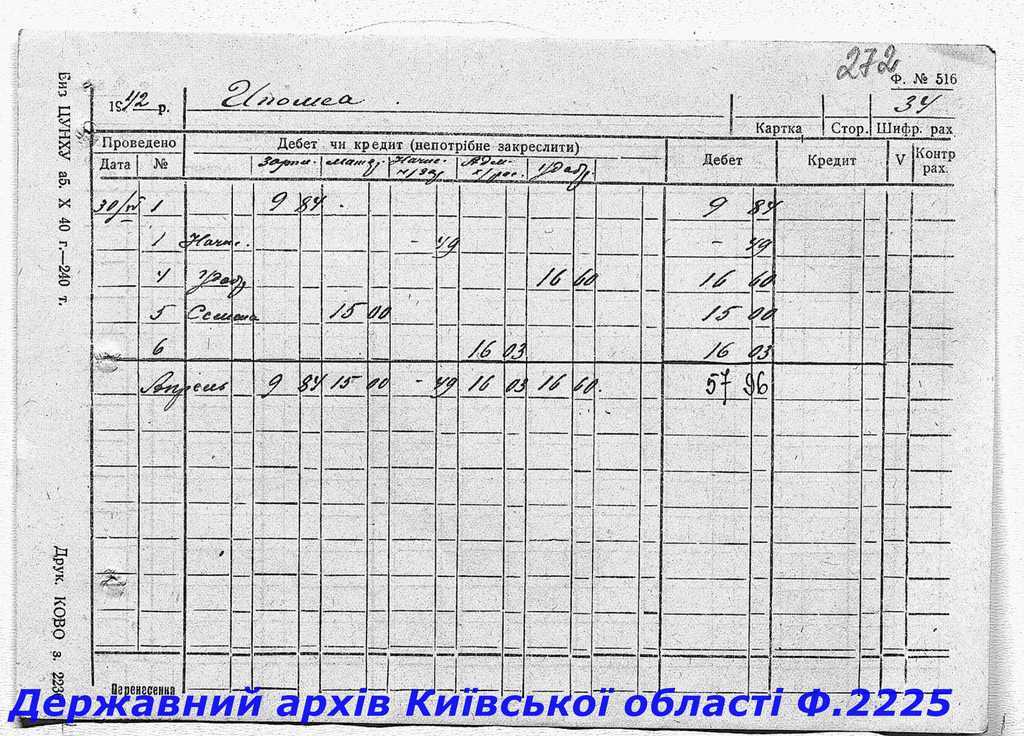 272
Ф. № 516
1942 р. Ипомеа 34
Картка Стор. Шифр. рах.
Проведено Дебет чи кредит (непотрібне закреслити) Дебет Кредит V Контр рах.
Дата № зарпл. матер. Начис. н/зар. Адм. х/рас. Удобр.
30/IV 1 9 84 9 84
1 Начис. - 49 - 49
4 Удобр 16 60 16 60
5 Семена 15 00 15 00
6 16 03 16 03
Апрель 9 84 15 00 - 49 16 03 16 60 57 96
Перенесення
Биз ЦУНХУ аб. X 40 г.—240 т.
Друк. КОВО з. 223
Державний архів Київської області Ф.2225